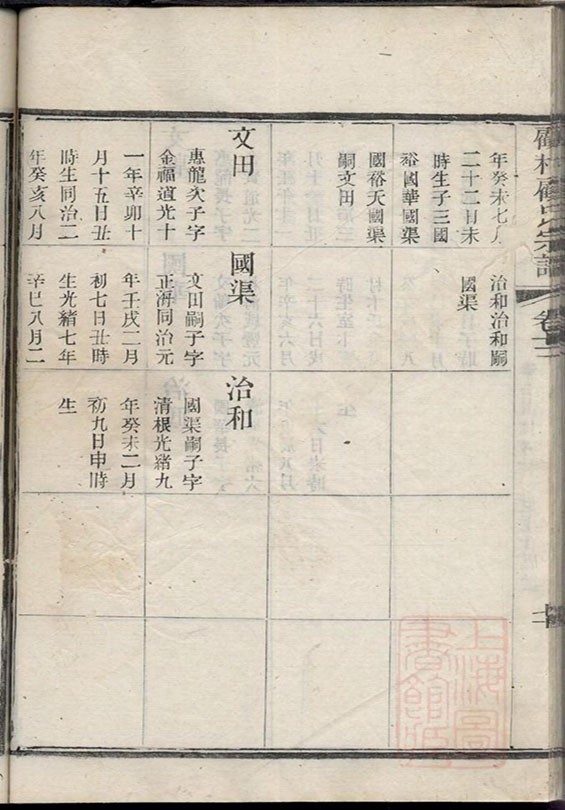 年癸未七月
二十二日未
時生子三國
裕國華國渠
國裕夭國渠
嗣文田
文田
惠龍次子字
金福道光十
一年辛卯十
月十五日丑
時生同治二
年癸亥八月
治和治和嗣
國渠
國渠
文田嗣子字
正海同治元
年壬戌二月
初七日丑時
生光緒七年
辛巳八月二
治和
國渠嗣子字
清根光緒九
年癸未二月
初九日申時
生
宗譜
卷十二
上海圖
書館藏